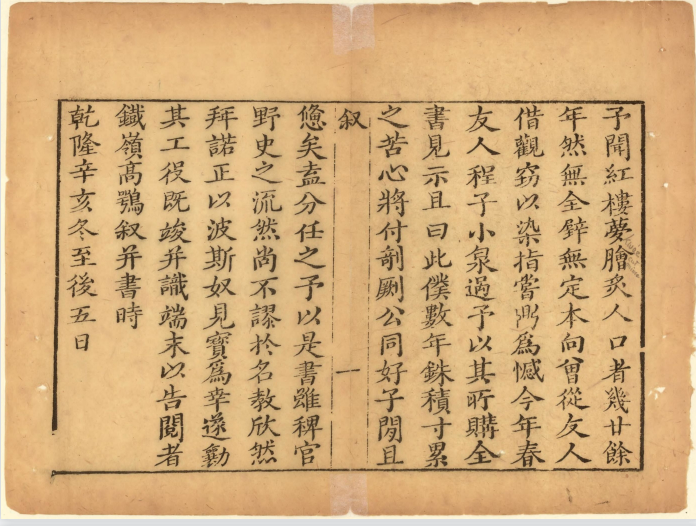 予聞紅樓夢膾炙人口者幾廿餘
年然無全璧無定本向曾從友人
借觀竊以染指嘗鼎為憾今年春
友人程子小泉過予以其所購全
書見示且曰此僕數年銖積寸累
之苦心將付剞劂公同好子閒且
叙
一
憊矣盍分任之予以是書雖稗官
野史之流然尚不謬於名教欣然
拜諾正以波斯奴見寶為幸遂勷
其工役既竣并識端末以告閱者
鐵嶺高鶚叙并書時
乾隆辛亥冬至後五日